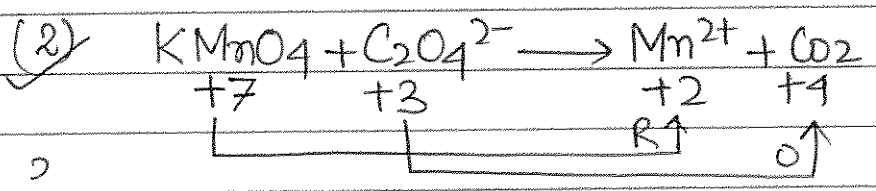 (2) KMnO4 + C2O4 2- → Mn2+ + Co2
+7 +3 +2 +4
R O